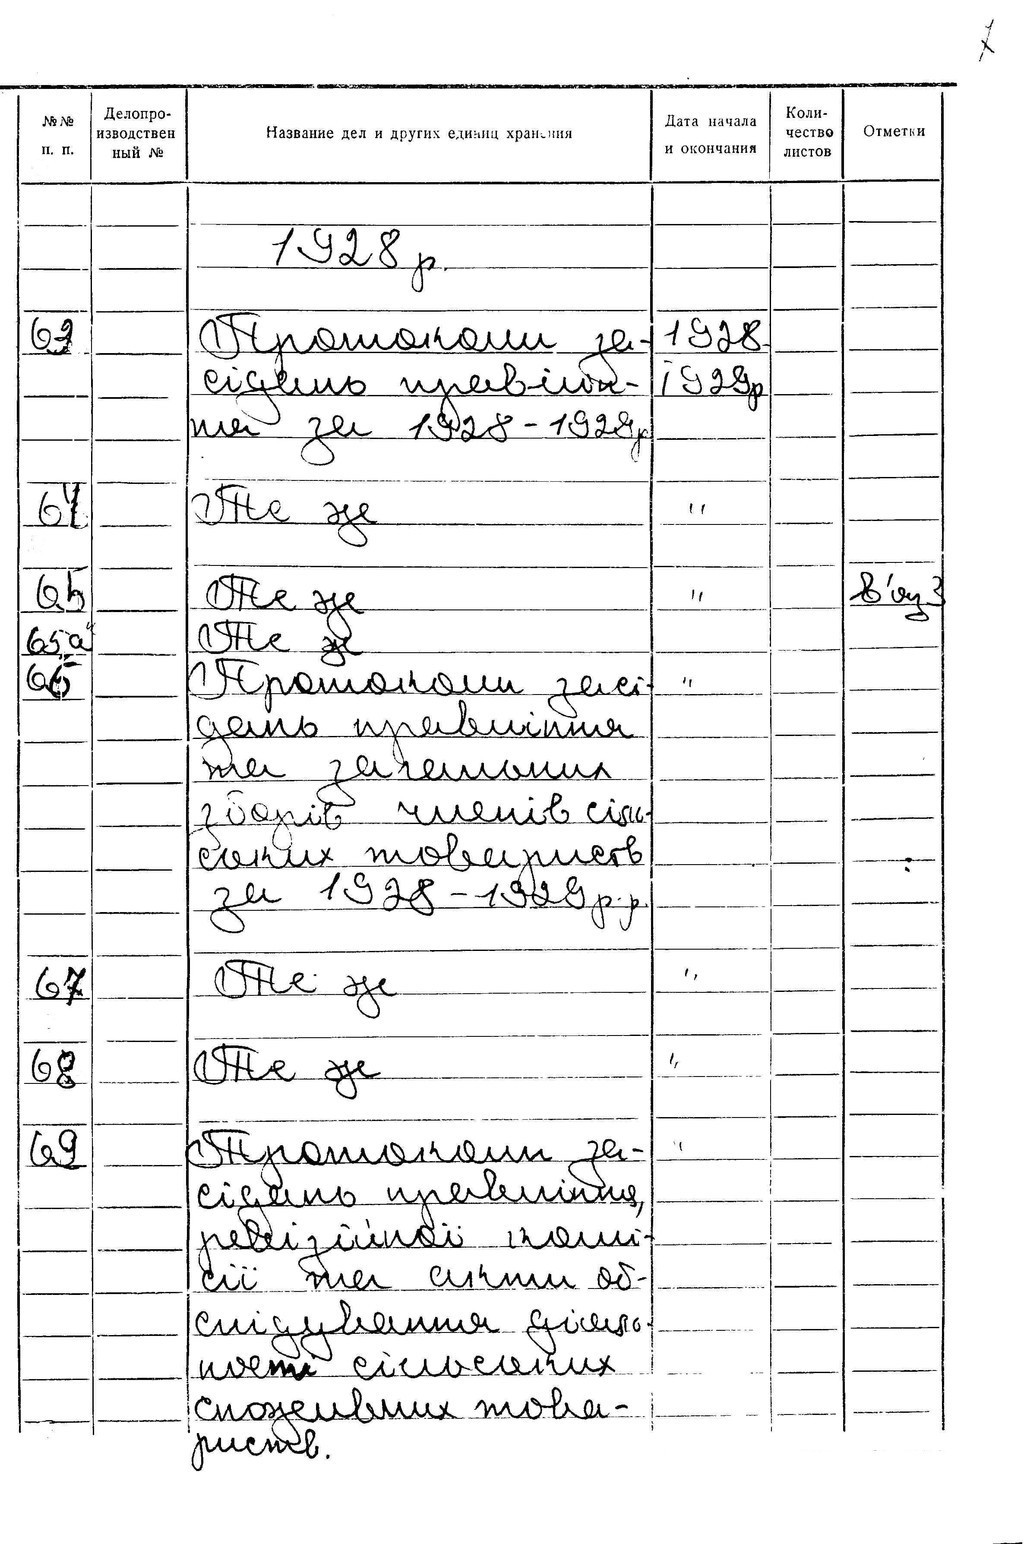 7
№№ п. п. Делопроизводствен ный № Название дел и других единиц хранения Дата начала и окончания Коли- чество листов Отметки
1928 р.
63 Протоколи за- 1928-
сідань правлін- 1929р
ня за 1928-1929р
64 Те же "
65 Те же "
65а Те же
66 Протоколи засі- "
дань правління
та загальних
зборів членів сіль-
ських товариств
за 1928-1929 р.р.
67 Те же "
68 Те же "
69 Протоколи за- "
сідань правління,
ревізійної комі-
сії та акти об-
слідування діяль-
ності сільських
споживчих това-
риств.